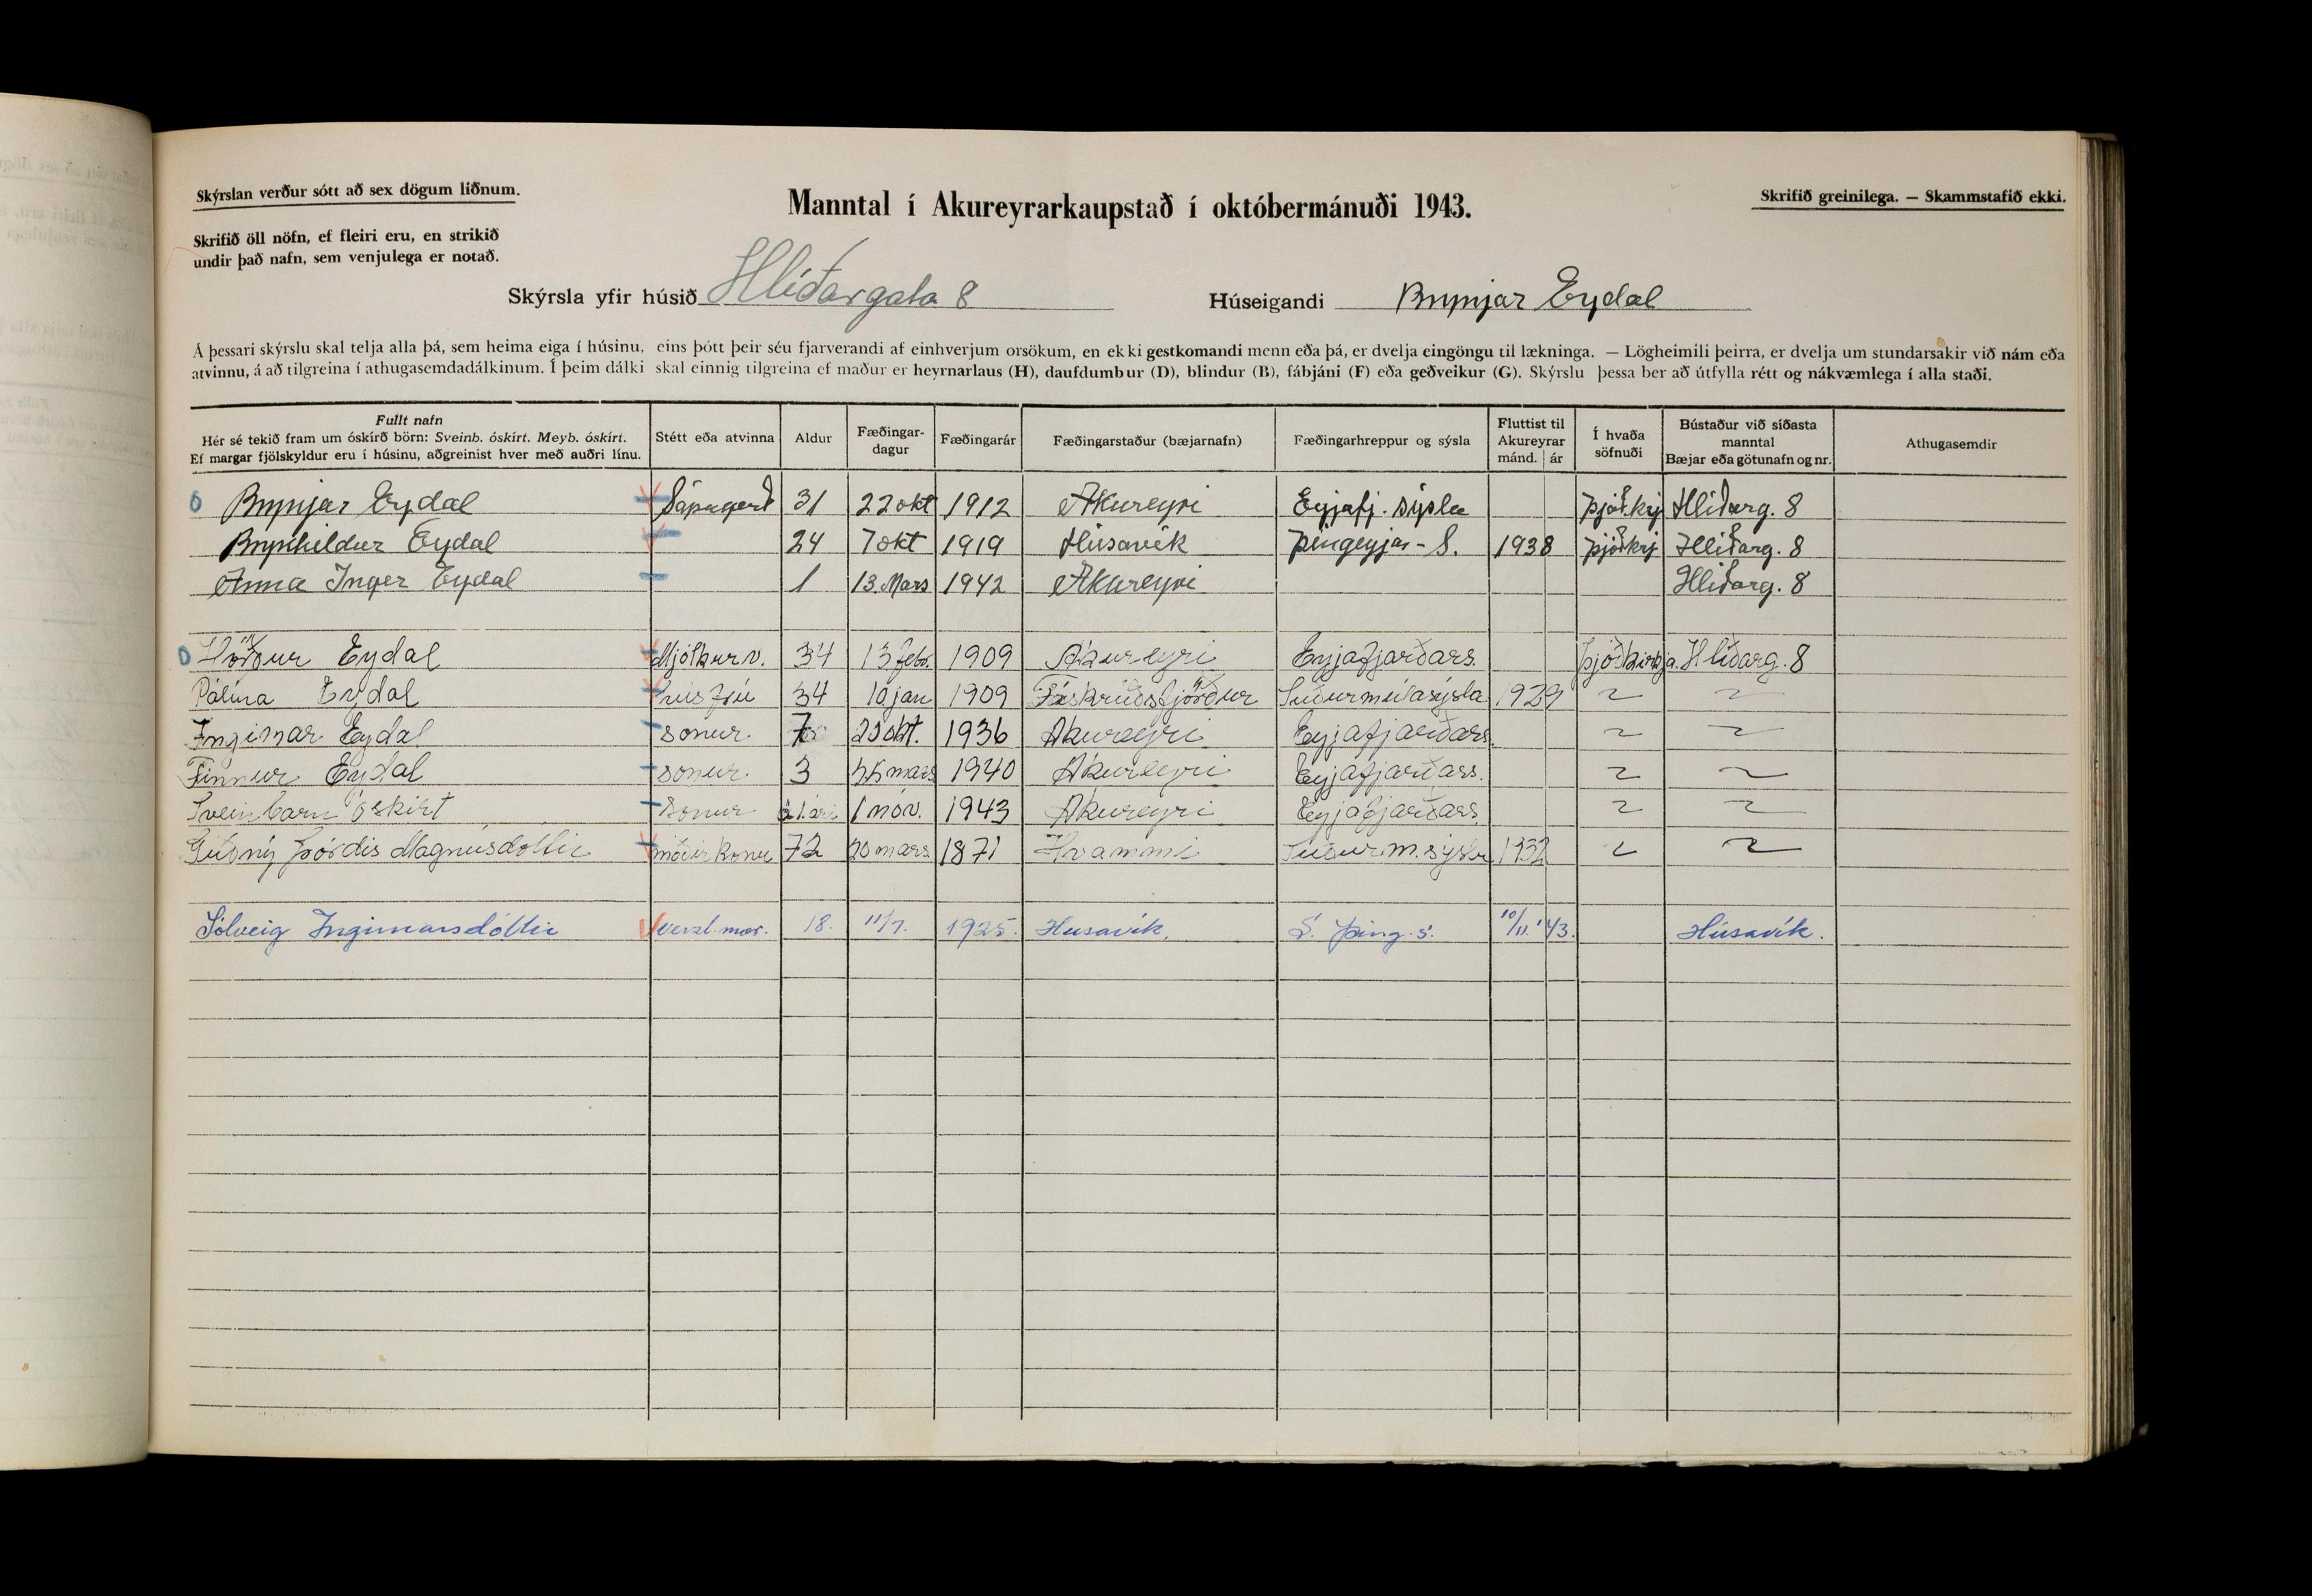 Skýrslan verður sótt að sex dögum liðnum.
Manntal í Akureyrarkaupstað í októbermánuði 1943.
Skrifið greinilega. — Skammstafið ekki.
Skrifið öll nöfn, ef fleiri eru, en strikið
undir það nafn, sem venjulega er notað.
Skýrsla yfir húsið Hlíðargata 8 Húseigandi Brynjar Eydal
Á þessari skýrslu skal telja alla þá, sem heima eiga í húsinu, eins þótt þeir séu fjarverandi af einhverjum orsökum, en ekki gestkomandi menn eða þá, er dvelja eingöngu til lækninga. — Lögheimili þeirra, er dvelja um stundarsakir við nám eða
atvinnu, á að tilgreina í athugasemdadálkinum. Í þeim dálki skal einnig tilgreina ef maður er heyrnarlaus (H), daufdumbur (D), blindur (B), fábjáni (F) eða geðveikur (G). Skýrslu þessa ber að útfylla rétt og nákvæmlega í alla staði.
Fullt nafn
Hér sé tekið fram um óskírð börn: Sveinb. óskírt. Meyb. óskírt.
Ef margar fjölskyldur eru í húsinu, aðgreinist hver með auðri línu.
Stétt eða atvinna
Aldur
Fæðingar-
dagur
Fæðingarár
Fæðingarstaður (bæjarnafn)
Fæðingarhreppur og sýsla
Fluttist til
Akureyrar
mánd. ár
Í hvaða
söfnuði
Bústaður við síðasta
manntal
Bæjar eða götunafn og nr.
Athugasemdir
Brynjar Eydal Sápugerð 31 22 okt 1912 Akureyri Eyjafj. sýsla Þjóðkrj Hlíðarg. 8
Brynhildur Eydal 24 7 okt 1919 Húsavík Þingeyjar-S. 1938 Þjóðkrj Hlíðarg. 8
Anna Inger Eydal 1 13. Mars 1942 Akureyri Hlíðarg. 8
Hörður Eydal Mjólkurv. 34 13 febr. 1909 Akureyri Eyjafjarðars. Þjóðkirkja. Hlíðarg. 8
Pálína Eydal húsfrú 34 10 jan 1909 Fáskrúðsfjörður Suðurmúlasýsla 1929 ~ ~
Ingimar Eydal sonur 7 20 okt. 1936 Akureyri Eyjafjarðars. ~ ~
Finnur Eydal sonur 3 mars 1940 Akureyri Eyjafjarðars. ~ ~
Sveinbarn óskírt sonur á 1. ári 1 nóv. 1943 Akureyri Eyjafjarðars. ~ ~
Guðný Þórdís Magnúsdóttir móðir konu 72 20 mars 1871 Hvammi Suðurm.sýslu 1932 ~ ~
Sólveig Ingimarsdóttir verzl.mær. 18. 11/7. 1925. Húsavík. S. Þing.s. 10/11. '43. Húsavík.